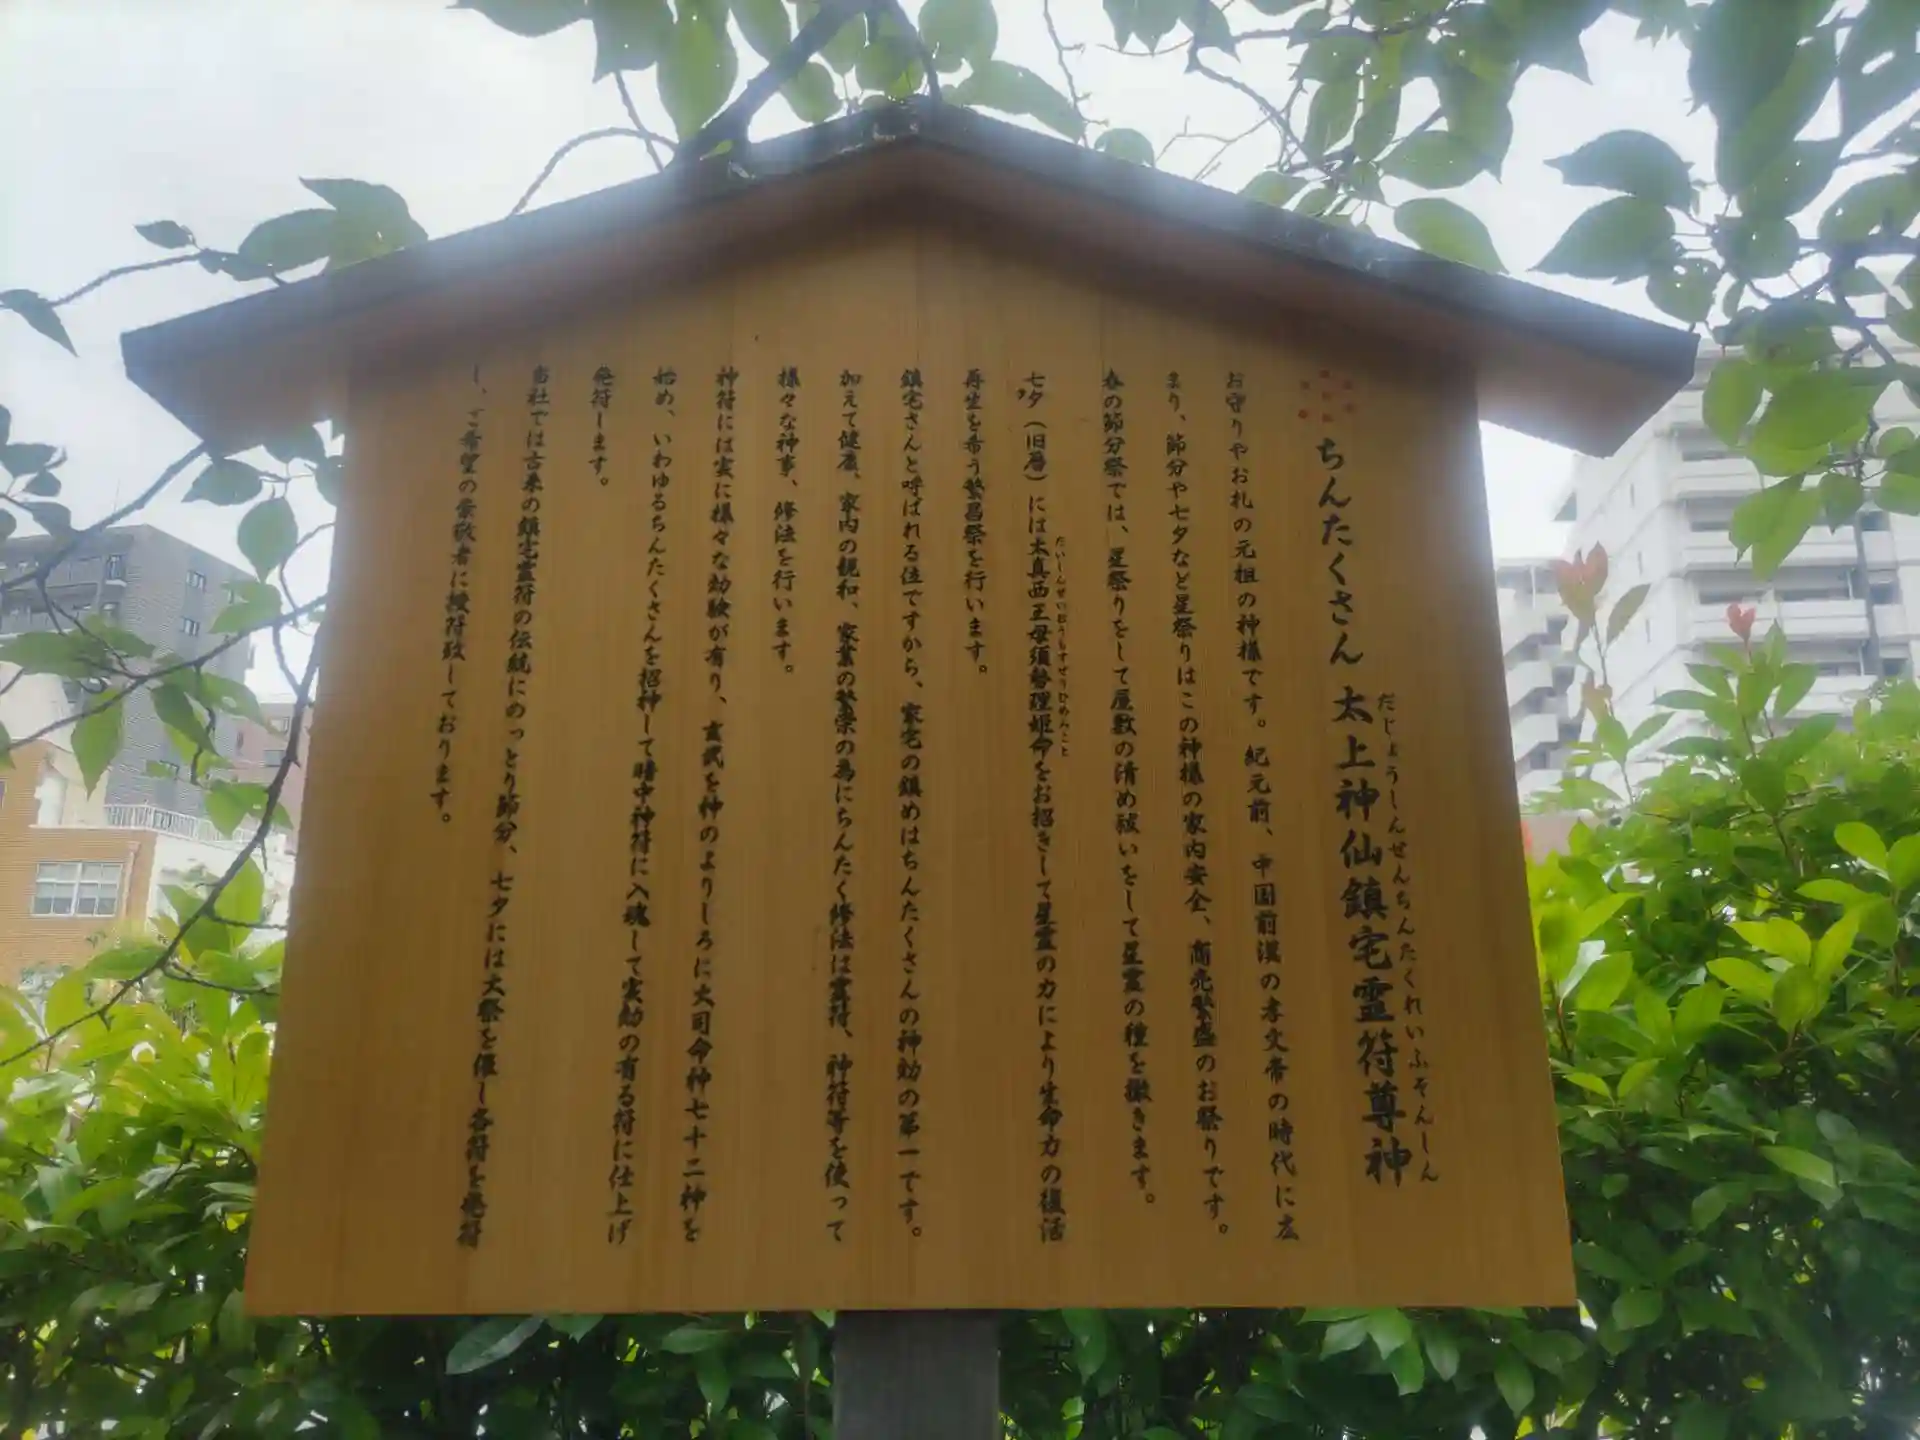 ちんたくさん 太上神仙鎮宅霊符尊神
だじょうしんせんちんたくれいふそんしん
お守りやお札の元祖の神様です。紀元前、中国前漢の孝文帝の時代に広
まり、節分や七夕など星祭りはこの神様の家内安全、商売繁盛のお祭りです。
春の節分祭では、星祭りをして屋敷の清め祓いをして星霊の種を撒きます。
七夕（旧暦）には太真西王母須勢理姫命をお招きして星霊の力により生命力の復活
たいしんせいおうぼすせりひめみこと
再生を希う繁昌祭を行います。
鎮宅さんと呼ばれる位ですから、家宅の鎮めはちんたくさんの神効の第一です。
加えて健康、家内の親和、家業の繁栄の為にちんたく修法は霊符、神符等を使って
様々な神事、修法を行います。
神符には実に様々な効験が有り、玄武を神のよりしろに大司命神七十二神を
始め、いわゆるちんたくさんを招神して暗中神符に入魂して実効の有る符に仕上げ
発符します。
当社では古来の鎮宅霊符の伝統にのっとり節分、七夕には大祭を催し各符を発符
し、ご希望の崇敬者に授符致しております。